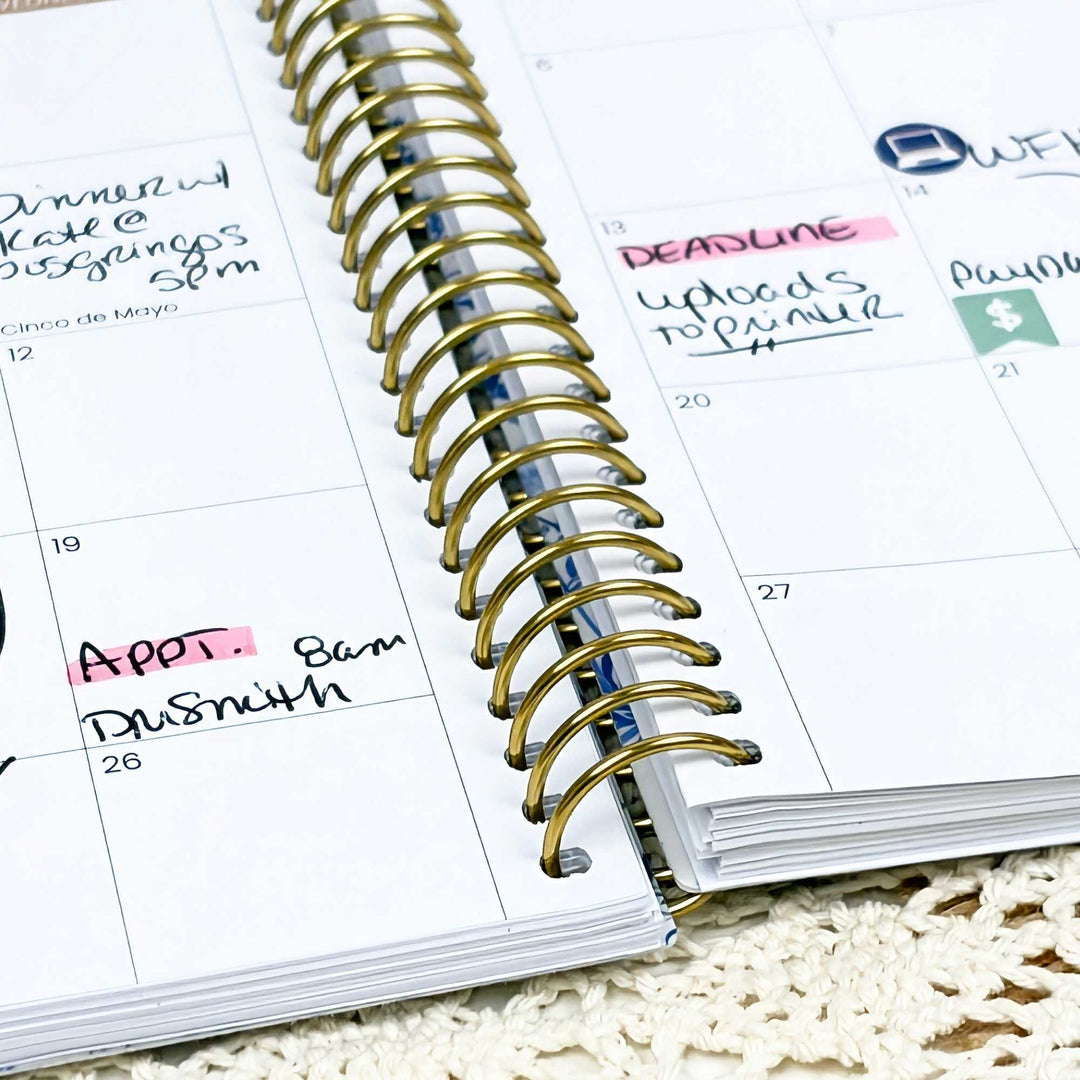 Dinner w/
Kate @
5pm
Cinco de Mayo
12
19
APPT. 8am
Dr. Smith
26
6
7
WFH
13
DEADLINE
uploads
to printer
14
20
21
27